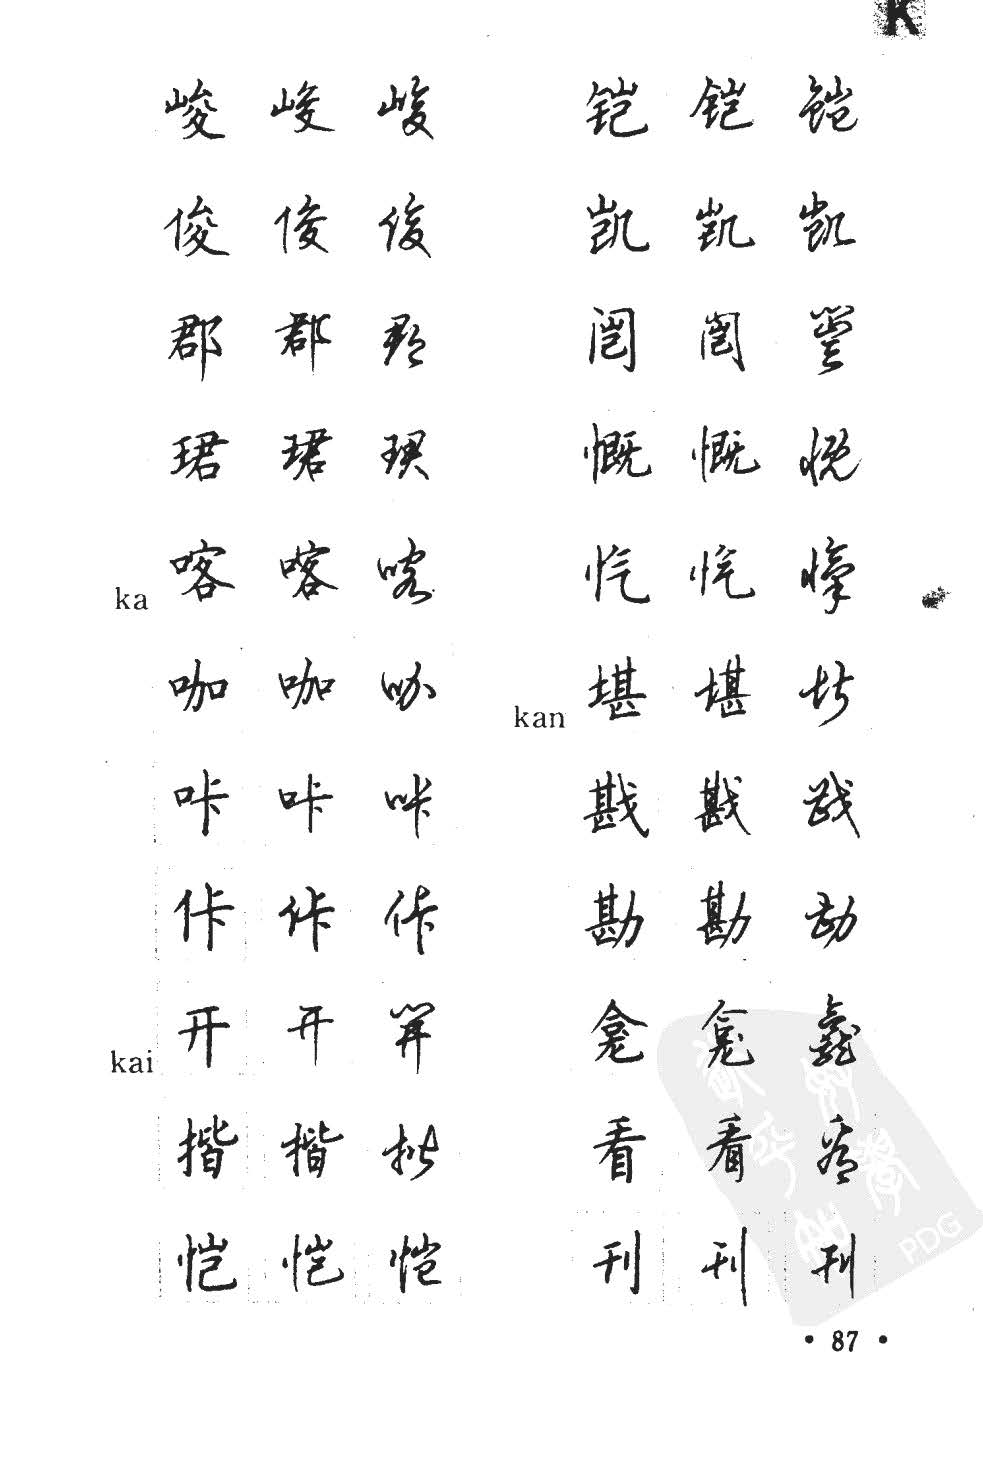 K
峻 峻 峻
俊 俊 俊
郡 郡 郡
珺 珺 珺
ka 喀 喀 喀
咖 咖 咖
咔 咔 咔
佧 佧 佧
kai 开 开 開
揩 揩 揩
恺 恺 恺
铠 铠 铠
凯 凯 凯
闿 闿 闿
慨 慨 慨
忾 忾 愾
kan 堪 堪 堪
戡 戡 戡
勘 勘 勘
龛 龛 龕
看 看 看
刊 刊 刊
PDG
• 87 •